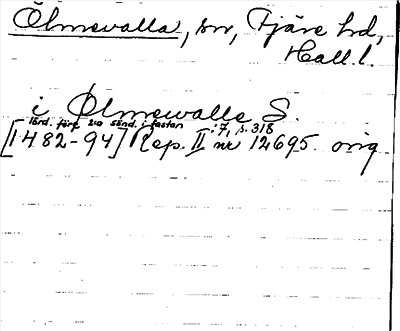 Ölmevalla, sn, Fjäre hd,
Hall. l.
i Ølmewalle S.
lörd. före 2:a sönd. i fastan : 7, s. 318
[1482-94] Rep. II nr 12695. orig